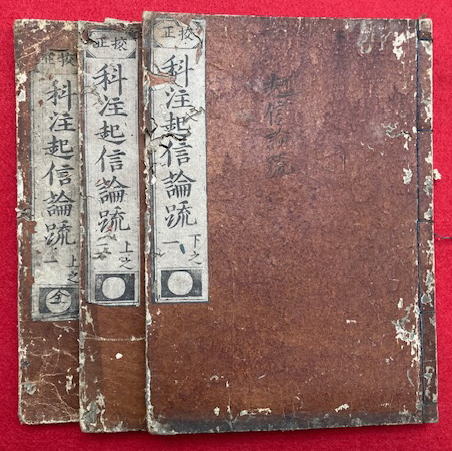 起信論疏
校正
科注起信論疏
下之
一
校正
科注起信論疏
上之
校正
科注起信論疏
上之
全